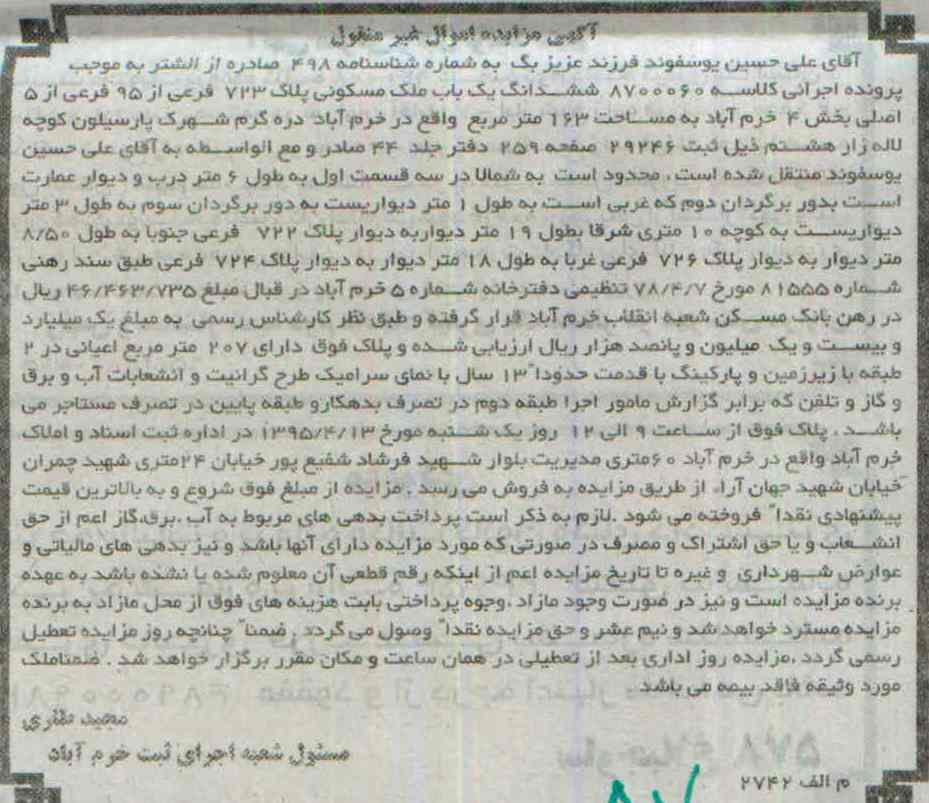 آگهی مزایده اموال غیر منقول
آقای علی حسین یوسفوند فرزند عزیز بگ به شماره شناسنامه ۴۹۸ صادره از الشتر به موجب
پرونده اجرائی کلاسه ۸۷۰۰۰۶۰ ششدانگ یک باب ملک مسکونی پلاک ۷۲۳ فرعی از ۹۵ فرعی از ۵
اصلی بخش ۴ خرم آباد به مساحت ۱۶۳ متر مربع واقع در خرم آباد دره گرم شهرک پارسیلون کوچه
لاله زار هشتم ذیل ثبت ۲۹۲۴۶ صفحه ۲۵۹ دفتر جلد ۴۴ صادر و مع الواسطه به آقای علی حسین
یوسفوند منتقل شده است، محدود است به شمالا در سه قسمت اول به طول ۶ متر درب و دیوار عمارت
است بدور برگردان دوم که غربی است به طول ۱ متر دیواریست به دور برگردان سوم به طول ۳ متر
دیواریست به کوچه ۱۰ متری شرقا بطول ۱۹ متر دیواربه دیوار پلاک ۷۲۲ فرعی جنوبا به طول ۸/۵۰
متر دیوار به دیوار پلاک ۷۲۶ فرعی غربا به طول ۱۸ متر دیوار به دیوار پلاک ۷۲۴ فرعی طبق سند رهنی
شماره ۸۱۵۵۵ مورخ ۷۸/۴/۷ تنظیمی دفترخانه شماره ۵ خرم آباد در قبال مبلغ ۴۶/۴۶۳/۷۳۵ ریال
در رهن بانک مسکن شعبه انقلاب خرم آباد قرار گرفته و طبق نظر کارشناس رسمی به مبلغ یک میلیارد
و بیست و یک میلیون و پانصد هزار ریال ارزیابی شده و پلاک فوق دارای ۲۰۷ متر مربع اعیانی در ۲
طبقه با زیرزمین و پارکینگ با قدمت حدودا ً۱۳ سال با نمای سرامیک طرح گرانیت و انشعابات آب و برق
و گاز و تلفن که برابر گزارش مامور اجرا طبقه دوم در تصرف بدهکارو طبقه پایین در تصرف مستاجر می
باشد . پلاک فوق از ساعت ۹ الی ۱۲ روز یک شنبه مورخ ۱۳۹۵/۴/۱۳ در اداره ثبت اسناد و املاک
خرم آباد واقع در خرم آباد ۶۰متری مدیریت بلوار شهید فرشاد شفیع پور خیابان ۲۴متری شهید چمران
خیابان شهید جهان آراء از طریق مزایده به فروش می رسد . مزایده از مبلغ فوق شروع و به بالاترین قیمت
پیشنهادی نقدا ً فروخته می شود .لازم به ذکر است پرداخت بدهی های مربوط به آب ،برق،گاز اعم از حق
انشعاب و یا حق اشتراک و مصرف در صورتی که مورد مزایده دارای آنها باشد و نیز بدهی های مالیاتی و
عوارض شهرداری و غیره تا تاریخ مزایده اعم از اینکه رقم قطعی آن معلوم شده یا نشده باشد به عهده
برنده مزایده است و نیز در صورت وجود مازاد ،وجوه پرداختی بابت هزینه های فوق از محل مازاد به برنده
مزایده مسترد خواهد شد و نیم عشر و حق مزایده نقدا ً وصول می گردد . ضمنا ً چنانچه روز مزایده تعطیل
رسمی گردد ،مزایده روز اداری بعد از تعطیلی در همان ساعت و مکان مقرر برگزار خواهد شد . ضمناملک
مورد وثیقه فاقد بیمه می باشد
مجید نظری
مسئول شعبه اجرای ثبت خرم آباد
م الف ۲۷۴۲